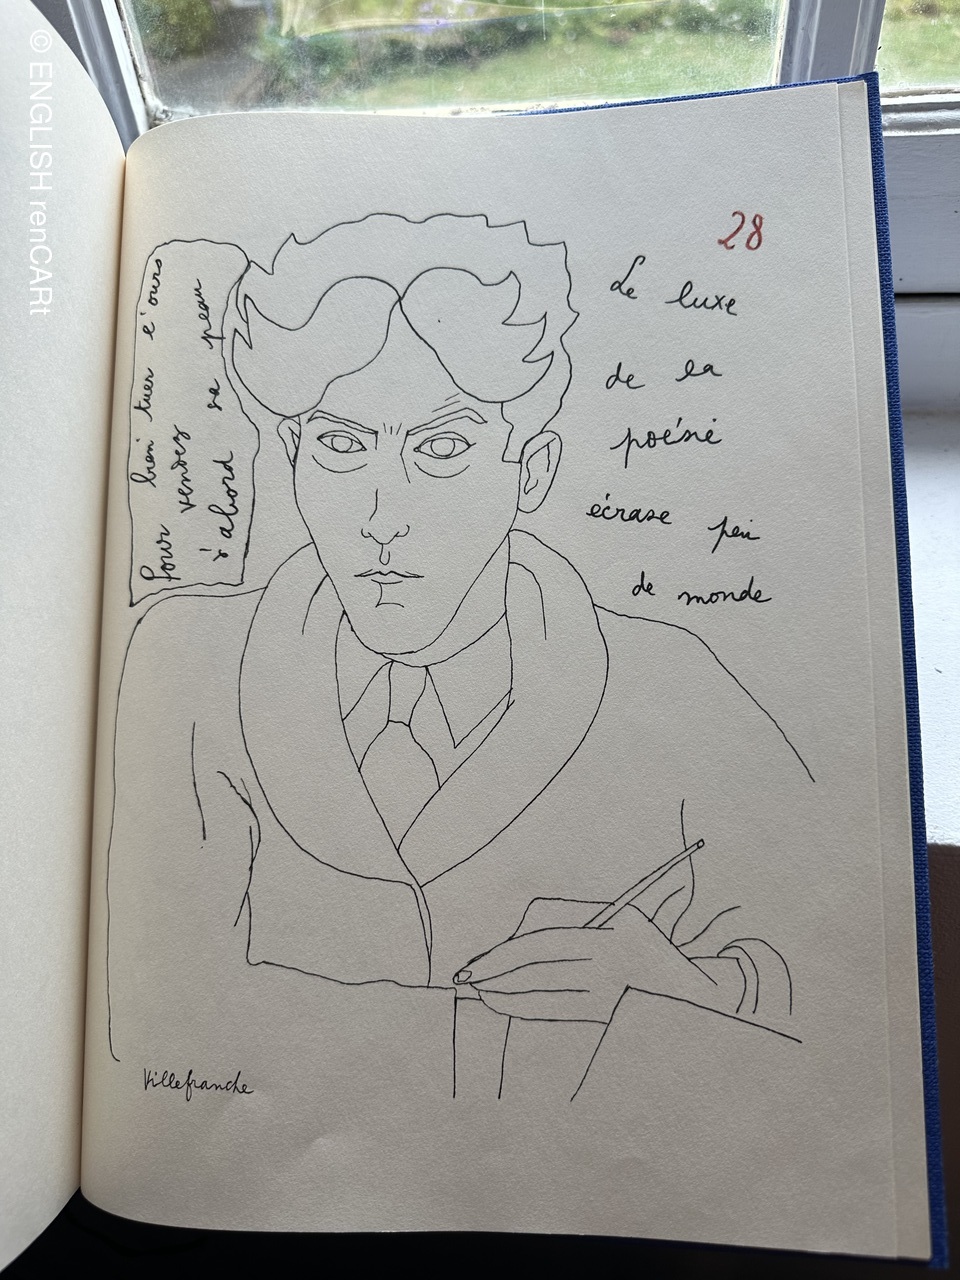 © ENGLISH renCARt
Pour bien tuer l'ours
vendez sa peau
d'abord
28
Le luxe
de la
poésie
écrase peu
de monde
Villefranche